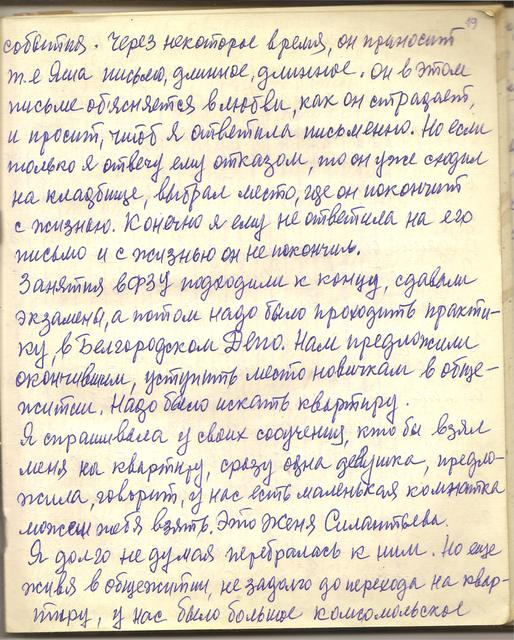 19
события. Через некоторое время, он приносит
т.е Яша письмо, длинное, длинное. Он в этом
письме об'ясняется в любви, как он страдает,
и просит, чтоб я ответила письменно. Но если
только я отвечу ему отказом, то он уже сходил
на кладбище, выбрал место, где он покончит
с жизнью. Конечно я ему не ответила на его
письмо и с жизнью он не покончил.
Занятия в ФЗУ подходили к концу, сдавали
экзамены, а потом надо было проходить практи-
ку, в Белгородском Депо. Нам предложили
окончившим, уступить место новичкам в обще-
житии. Надо было искать квартиру.
Я спрашивала у своих соучениц, кто бы взял
меня на квартиру, сразу одна девушка, предло-
жила, говорит, у нас есть маленькая комнатка
можем тебя взять. Это Женя Силантьева.
Я долго не думая перебралась к ним. Но еще
живя в общежитии, не задолго до перехода на квар-
тиру, у нас было большое комсомольское